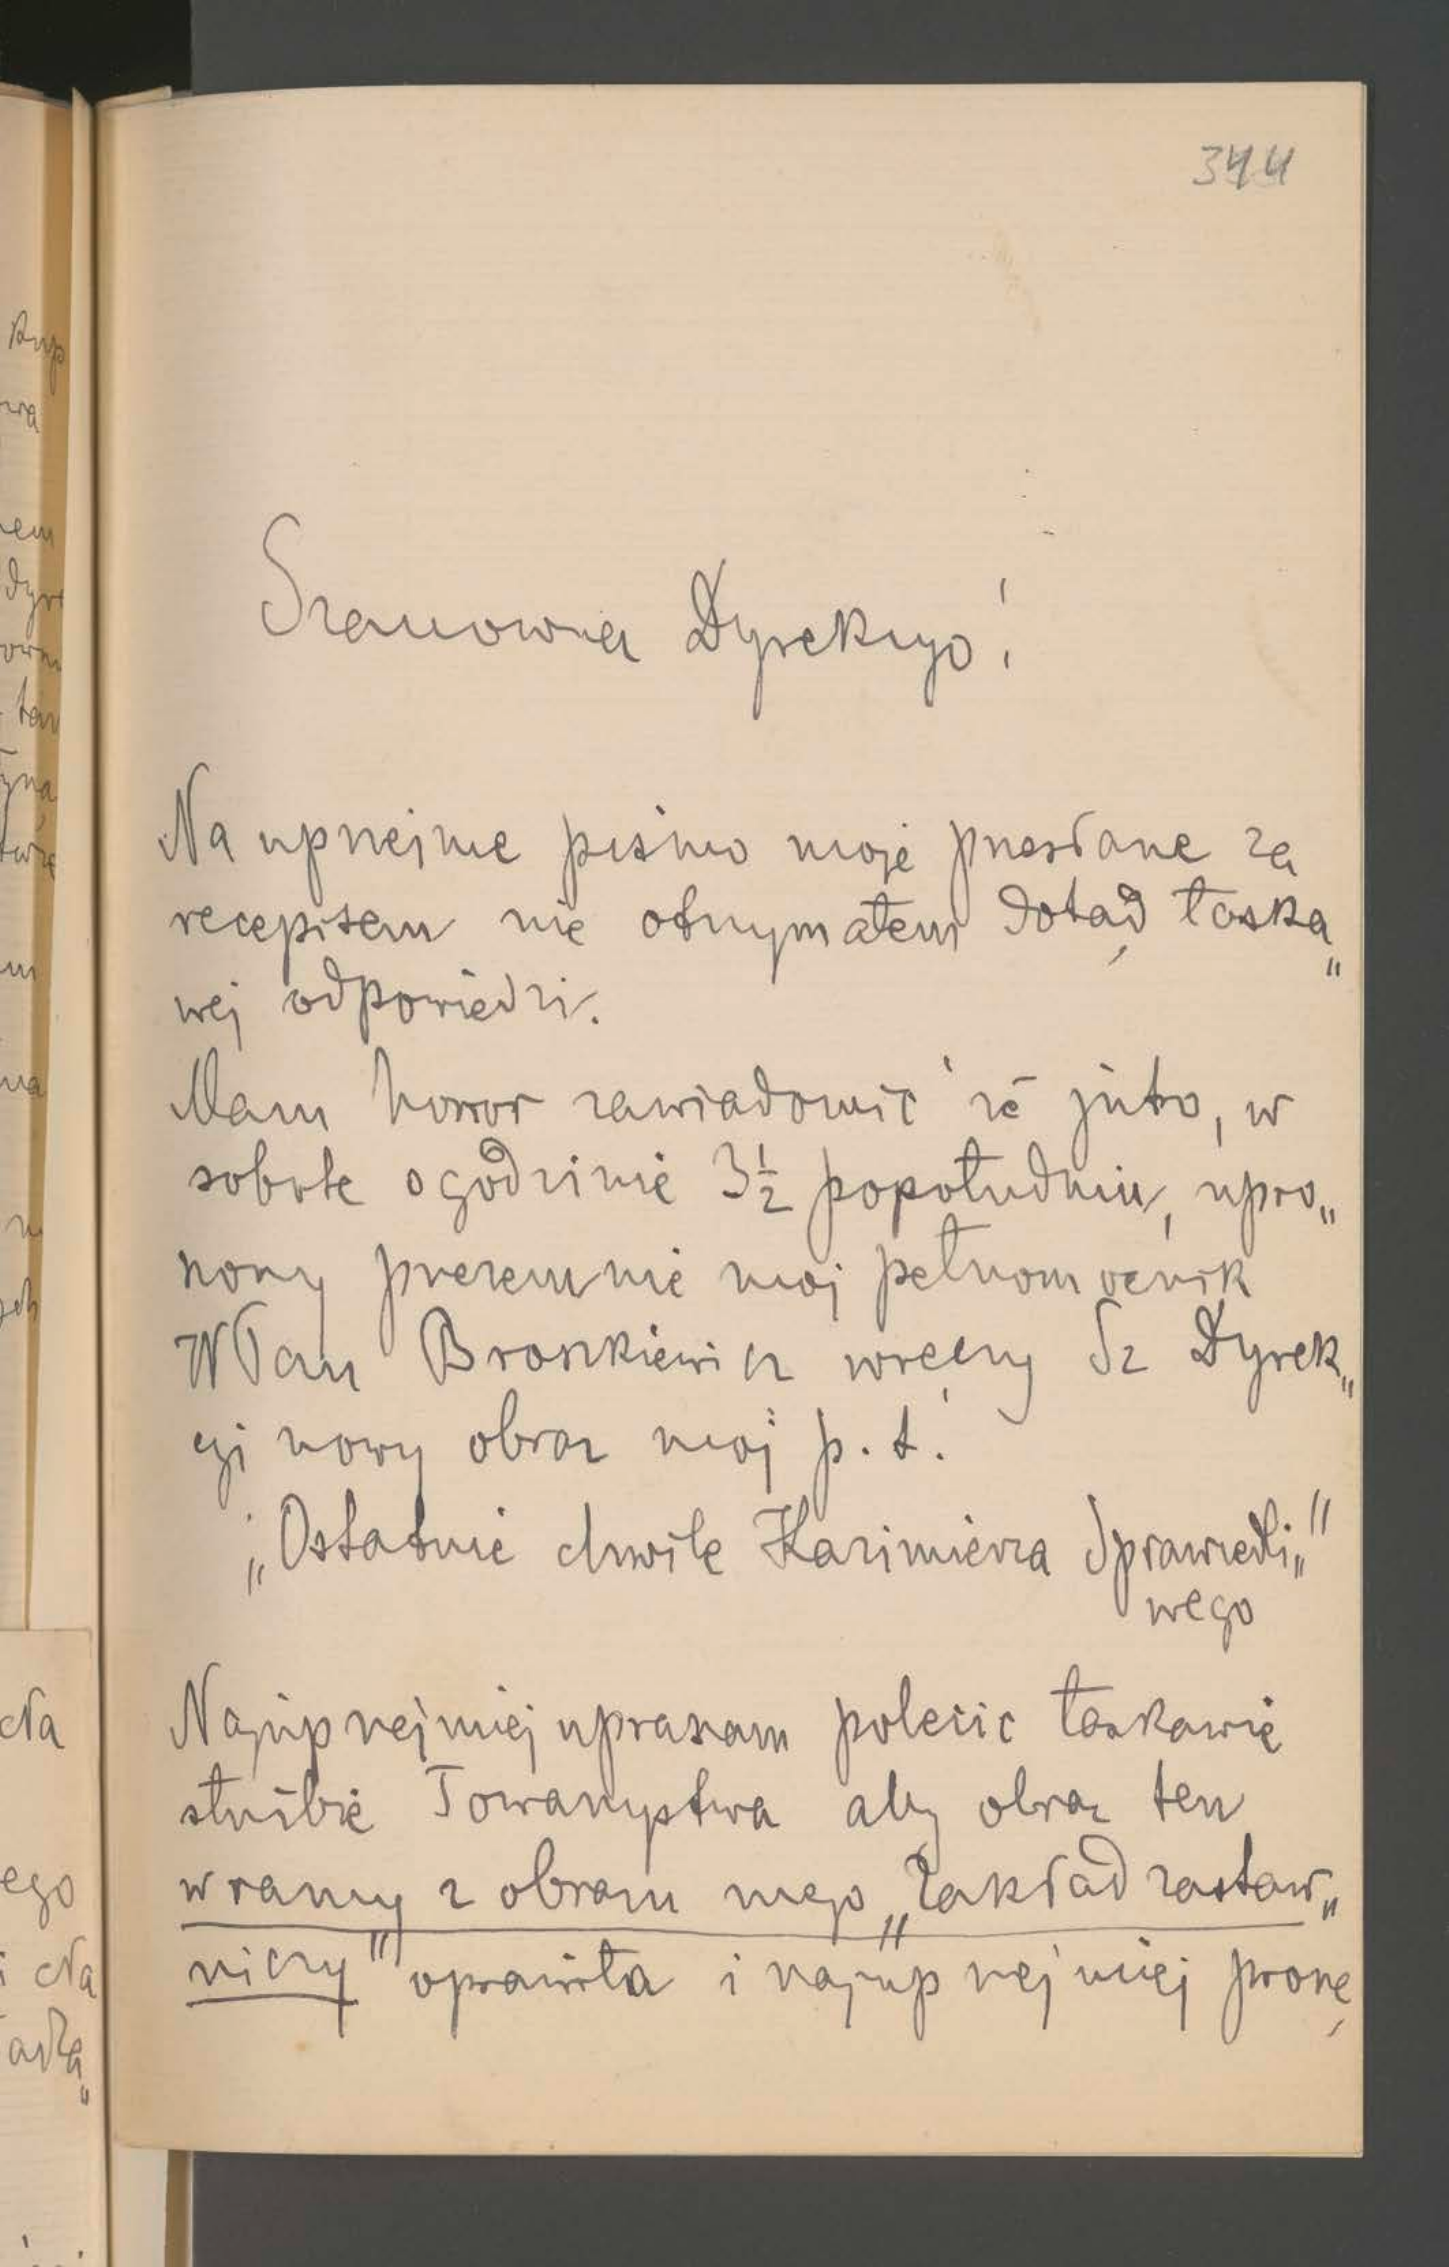 344
Szanowna Dyrekcyo!
Na uprzejme pismo moje przesłane za
recepisem nie otrzymałem dotąd łaska„
wej odpowiedzi.
Mam honor zawiadomić że jutro, w
sobotę o godzinie 3½ popołudniu, upro„
szony przezemnie moj pełnomocnik
WPan Broszkiewicz wręczy Sz Dyrek„
cyi nowy obraz moj p. t.
„Ostatnie chwile Kazimierza Sprawiedli„"
wego
Najuprzejmiej upraszam polecić łaskawie
służbie Towarzystwa aby obraz ten
w ramy z obrazu mego „Zakład zastaw„
niczy" oprawiła i najuprzejmiej proszę